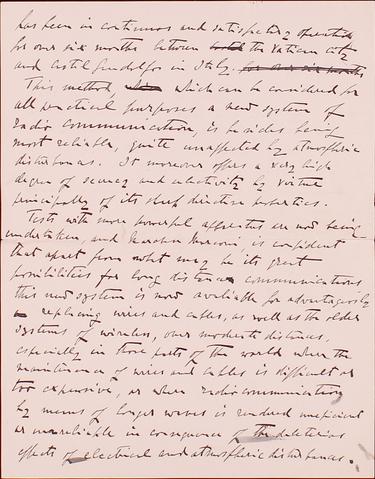 has been in continuous and satisfactory operation
for over six months between the Vatican City
and Castel Gandolfo in Italy. for over six months
This method, which can be considered for
all practical purposes a new system of
radio communication, is besides being
most reliable, quite unaffected by atmospheric
disturbances. It moreover offers a very high
degree of secrecy and selectivity by virtue
principally of its sharp directive properties.
Tests with more powerful apparatus are now being
undertaken, and Marchese Marconi is confident
that apart from what may be its great
possibilities for long distance communications,
this new system is now available for advantageously
replacing wires and cables, as well as the older
systems of wireless, over moderate distances,
especially in those parts of the world where the
maintenance of wires and cables is difficult or
too expensive, or where radio communication
by means of longer waves is rendered inefficient
or unreliable in consequence of the deleterious
effects of electrical and atmospheric disturbances.